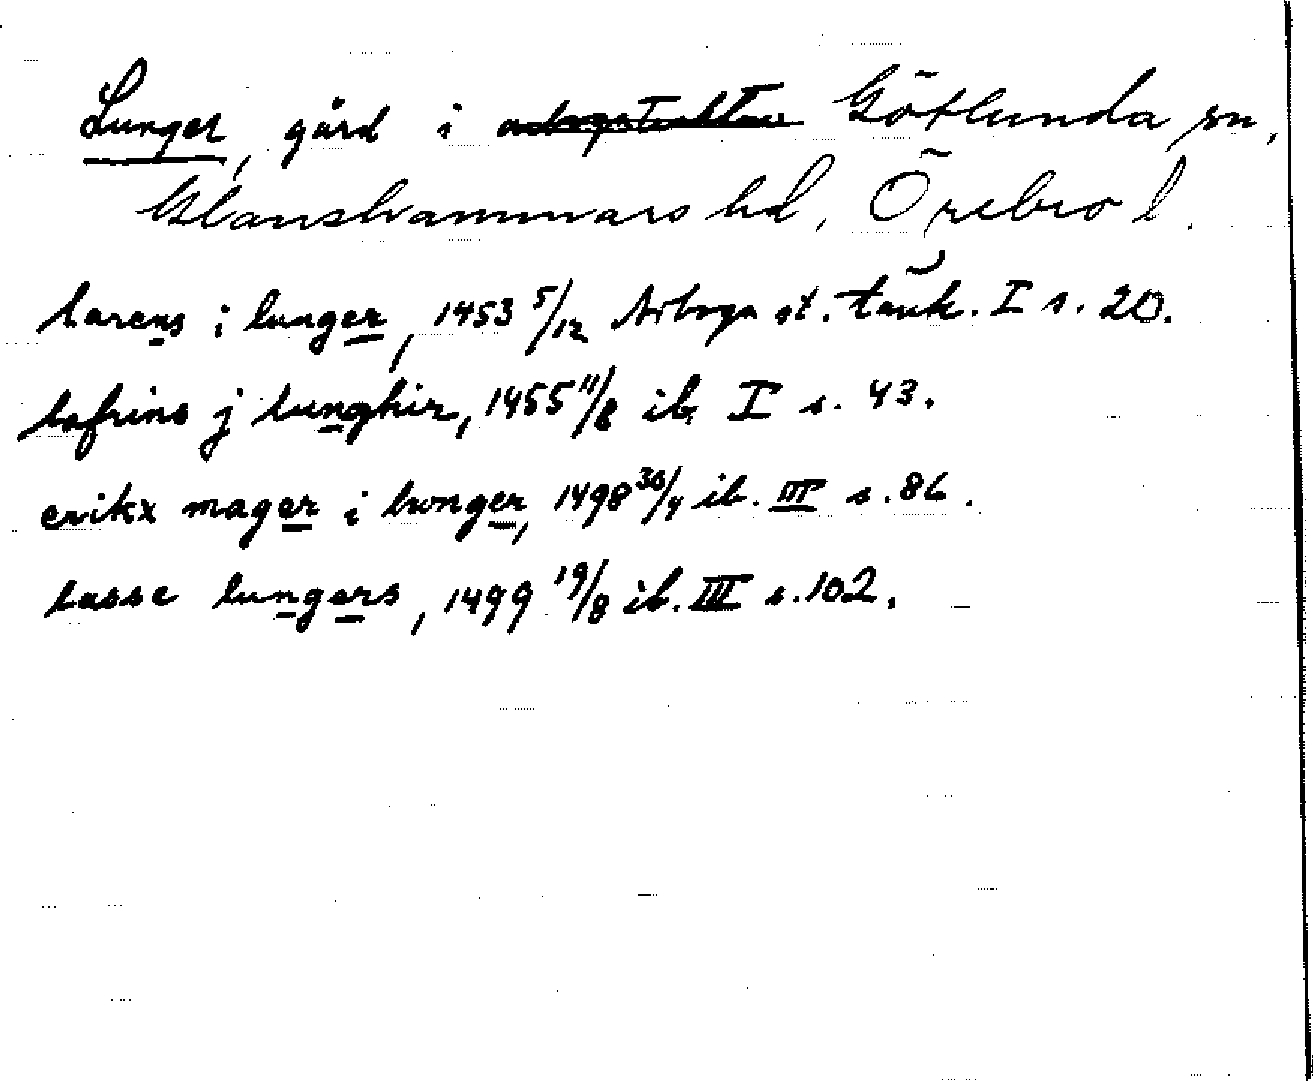 Lunger, gård i Götlunda sn,
Glanshammars hd, Örebro l.
larens i lunger, 1453 5/12 Arboga st. tänk. I s. 20.
lafrins j lunghir, 1455 11/8 ib. I s. 43.
erikx mager i lunger, 1498 30/4 ib. III s. 86.
lasse lungers, 1499 19/8 ib. III s. 102.